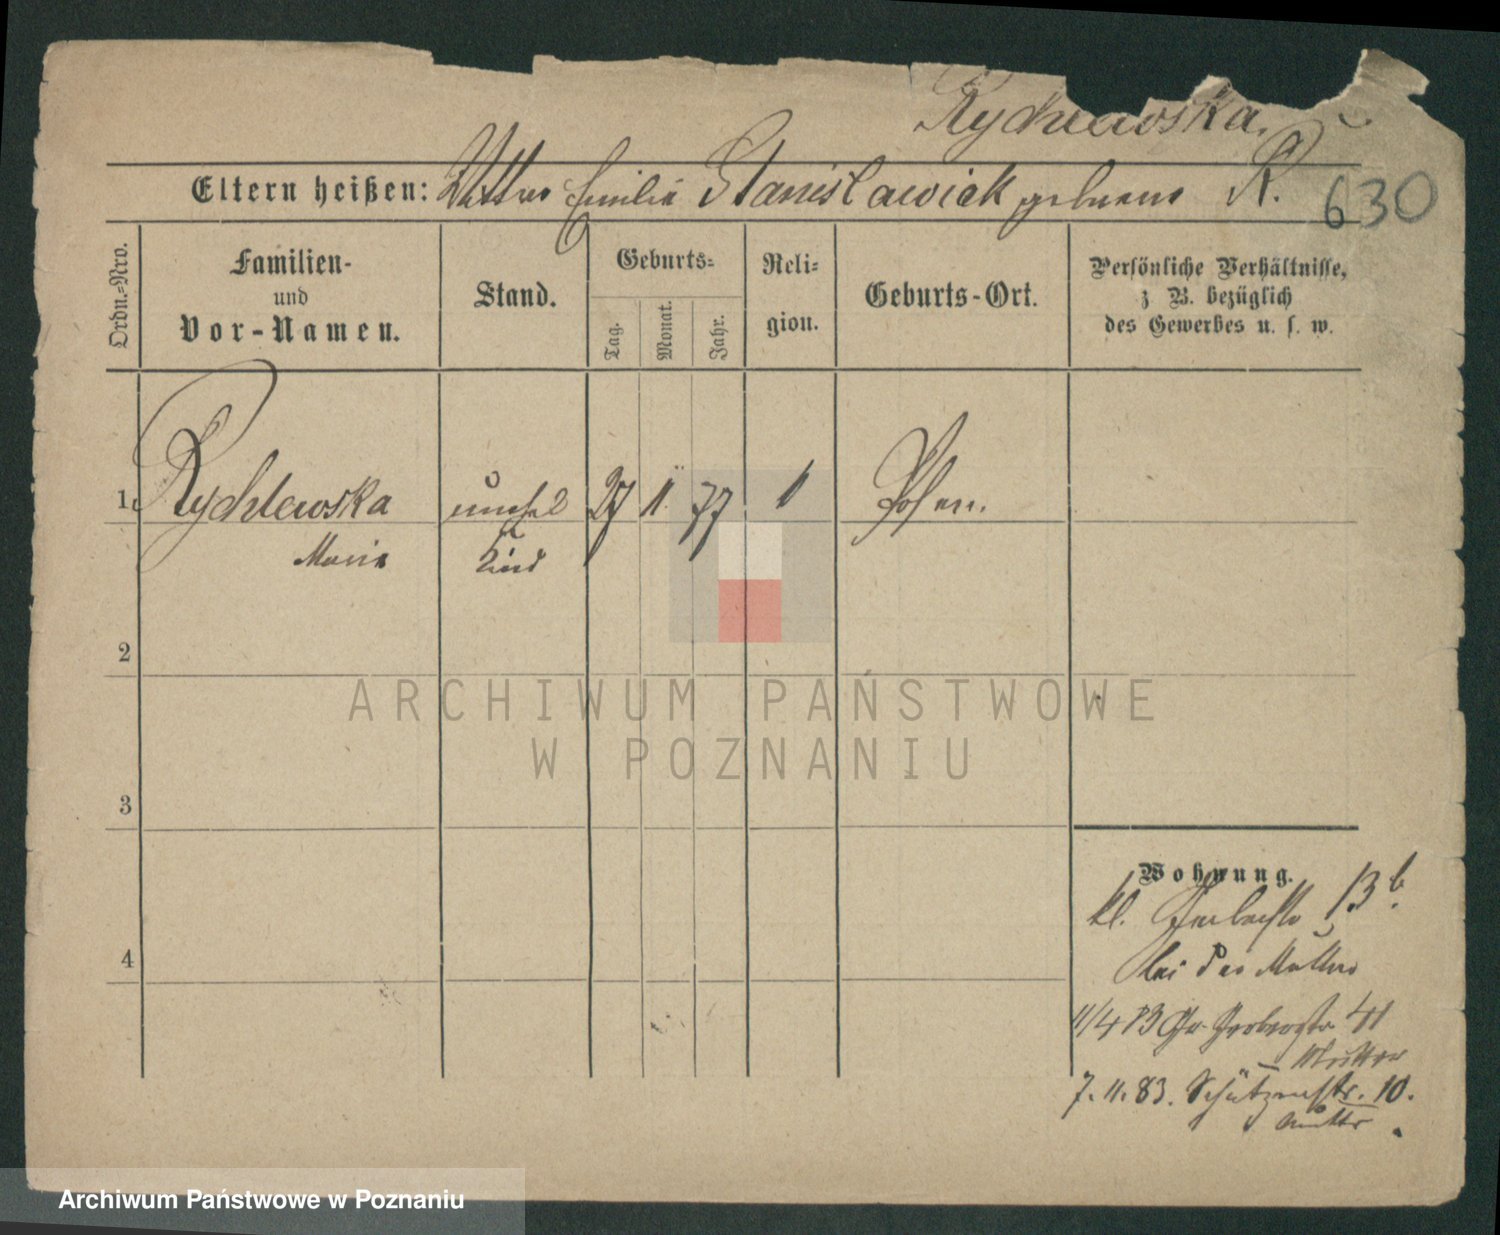 Rychlewska.
Eltern heißen: Mutter Emilie Stanislawiak geborene R.
630
Ordn.-Nro.
Familien-
und
Vor-Namen.
Stand.
Geburts-
Tag.
Monat.
Jahr.
Reli-
gion.
Geburts-Ort.
Persönliche Verhältnisse,
z B. bezüglich
des Gewerbes u. s. w.
1. Rychlewska unehel 27 11 77 Posen.
Maria Kind
2
3
4
Wohnung.
kl. Gerberstr 13 b.
bei der Mutter
11/4 83 Gr. Gerberstr. 41
Mutter
7. 11. 83. Schützenstr. 10.
Mutter
ARCHIWUM PAŃSTWOWE
W POZNANIU
Archiwum Państwowe w Poznaniu